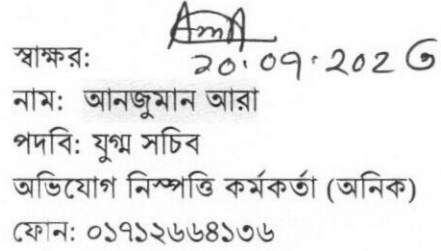 স্বাক্ষর:
২০.০৭.২০২৩
নাম: আনজুমান আরা
পদবি: যুগ্ম সচিব
অভিযোগ নিস্পত্তি কর্মকর্তা (অনিক)
ফোন: ০১৭১২৬৬৪১৩৬